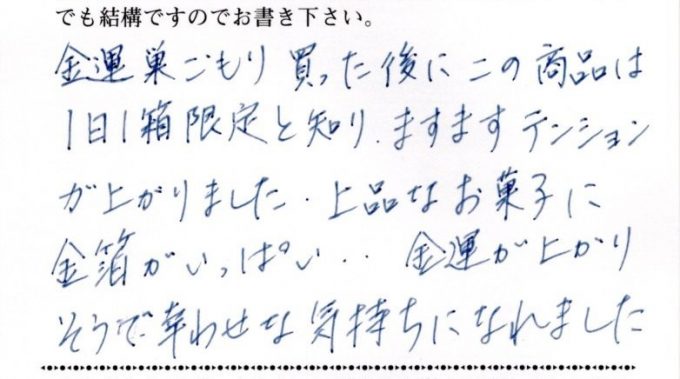 でも結構ですのでお書き下さい。
金運巣ごもり買った後にこの商品は
1日1箱限定と知り.ますますテンション
が上がりました.上品なお菓子に
金箔がいっぱい‥金運が上がり
そうで幸わせな気持ちになれました